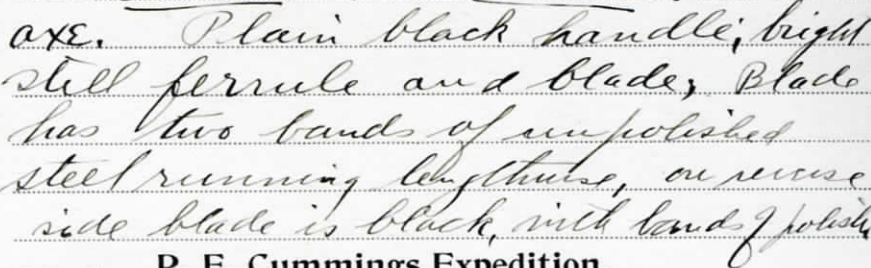 axe. Plain black handle; bright
steel ferrule and blade; Blade
has two bands of unpolished
steel running lengthwise, on reverse
side blade is black, with bands of polish
R. F. Cummings Expedition